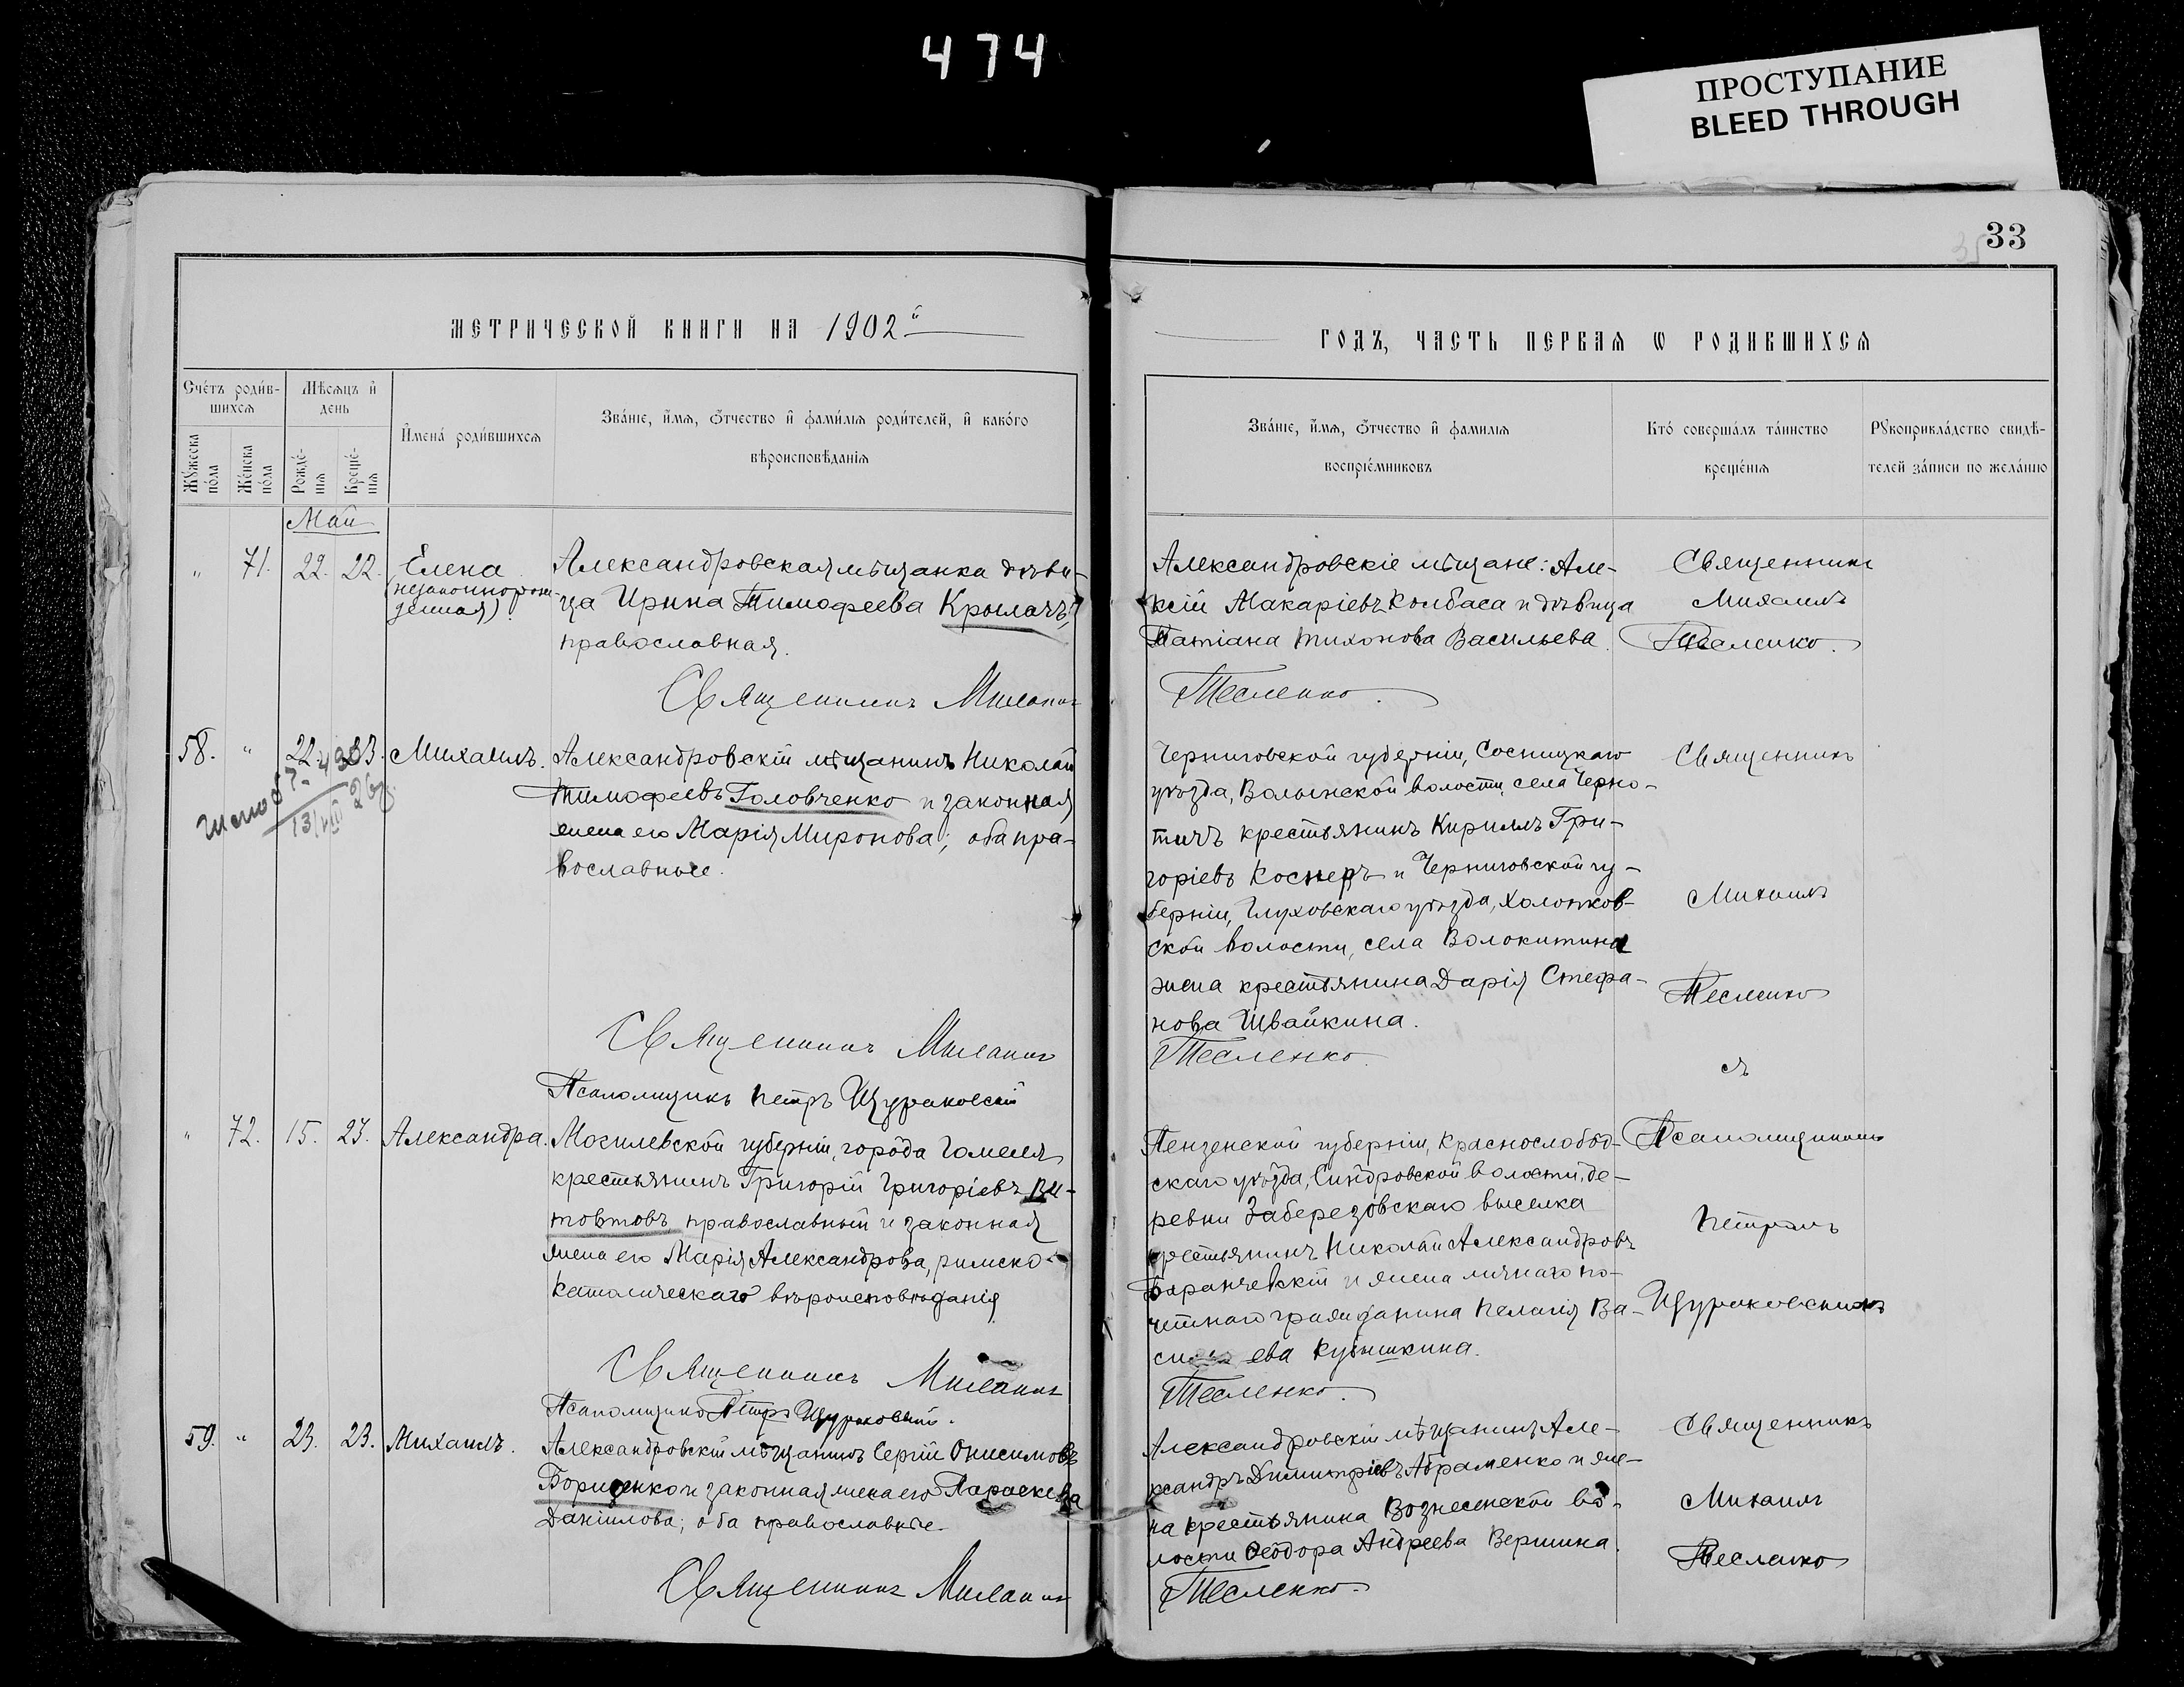 474
ПРОСТУПАНИЕ
BLEED THROUGH
33
35
МЕТРИЧЕСКОЙ КНИГИ НА 1902й
ГОДЪ, ЧАСТЬ ПЕРВАЯ Ѡ РОДИВШИХСЯ
Счетъ родив-
шихся
Мѣсяцъ и
день
Имена родившихся
Званіе, имя, отчество и фамилія родителей, и какого
вѣроисповѣданія
Мужеска
пола
Женска
пола
Рожде-
нія
Креще-
нія
Званіе, имя, отчество и фамилія
воспріемниковъ
Кто совершалъ таинство
крещенія
Рукоприкладство свидѣ-
телей записи по желанію
Май
" 71. 22. 22. Елена
(незаконнорож-
денная).
Александровская мѣщанка дѣви-
ца Ирина Тимофеева Крылачъ,
православная.
Священникъ Михаилъ
Александровскіе мѣщане: Але-
ксій Макаріевъ Колбаса и дѣвица
Татіана Тихонова Васильева.
Тесленко.
Священникъ
Михаилъ
Тесленко.
58. " 22. 23. Михаилъ.
13/VIII
Александровскій мѣщанинъ Николай
Тимофеевъ Головченко и законная
жена его Марія Миронова; оба пра-
вославные.
Священникъ Михаилъ
Псаломщикъ Петръ Щураковскій
Черниговской губерніи, Сосницкаго
уѣзда, Волынской волости, села Черно-
тичъ крестьянинъ Кириллъ Гри-
горіевъ Коснеръ и Черниговской гу-
берніи, Глуховскаго уѣзда, Холопков-
ской волости, села Волокитина
жена крестьянина Дарія Стефа-
нова Швайкина.
Тесленко.
Священникъ
Михаилъ
Тесленко
съ
" 72. 15. 23. Александра.
Могилевской губерніи, города Гомеля
крестьянинъ Григорій Григоріевъ Ви-
товтовъ православный и законная
жена его Марія Александрова, римско-
католическаго вѣроисповѣданія
Священникъ Михаилъ
Псаломщикъ Петръ Щураковскій.
Пензенской губерніи, Краснослобод-
скаго уѣзда, Синдровской волости, де-
ревни Заберезовскаго выселка
крестьянинъ Николай Александровъ
Баранчевскій и жена личнаго по-
четнаго гражданина Пелагія Ва-
сильева Кубышкина.
Тесленко.
Псаломщикомъ
Петромъ
Щураковскимъ
59. " 23. 23. Михаилъ.
Александровскій мѣщанинъ Сергій Онисимовъ
Борисенко и законная жена его Параскева
Даніилова; оба православные.
Священникъ Михаилъ
Александровскій мѣщанинъ Але-
ксандръ Димитріевъ Абраменко и же-
на крестьянина Вознесенской во-
лости Ѳеодора Андреева Вершина.
Тесленко.
Священникъ
Михаилъ
Тесленко